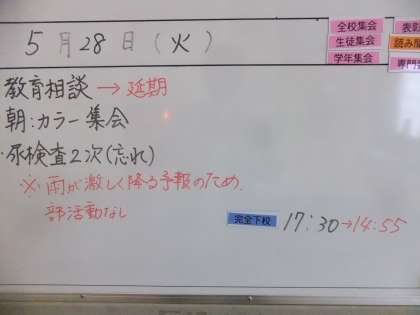 5月28日(火)
全校集会
生徒集会
学年集会
表彰
読み聞
専門
教育相談→延期
朝:カラー集会
・尿検査2次(忘れ)
※雨が激しく降る予報のため
部活動なし
完全下校 17:30→14:55